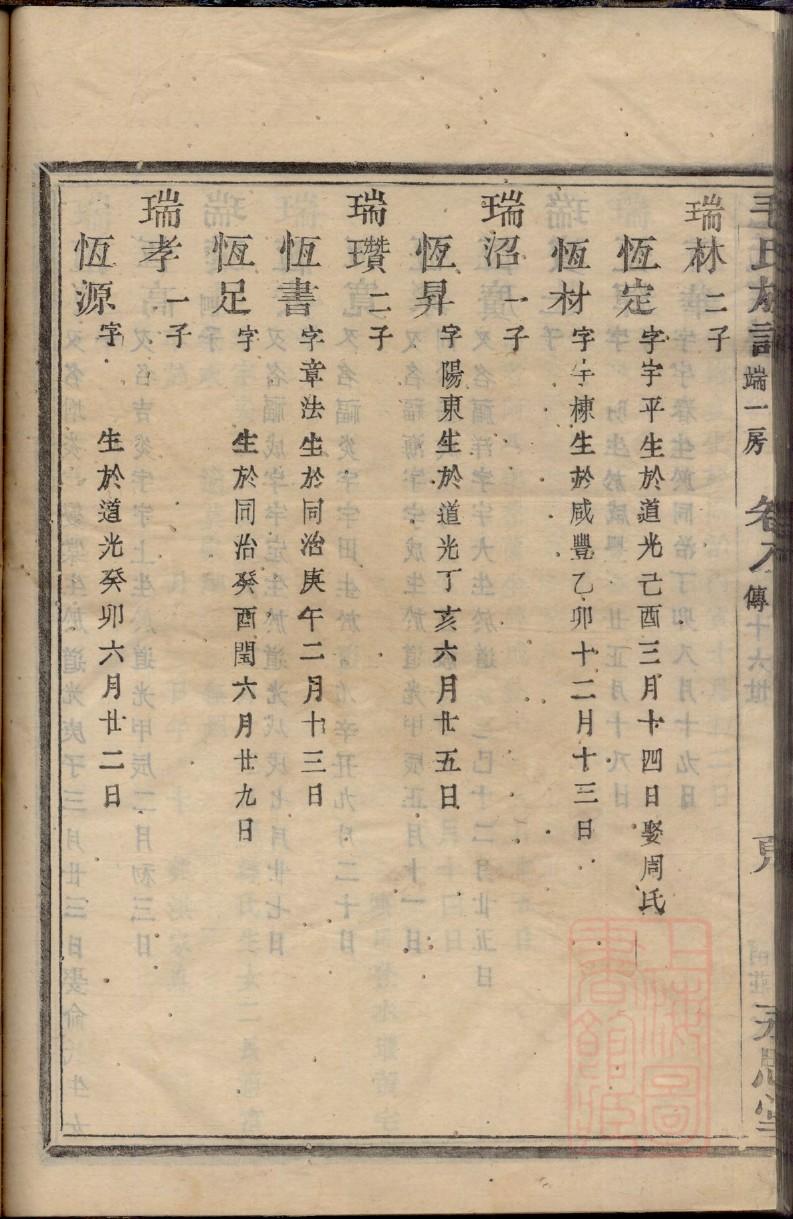 毛氏族譜 端一房 卷八 傳十六世 永思堂
瑞林 二子
恆定 字宇平生於道光己酉三月十四日娶周氏
恆材 字宇棟生於咸豐乙卯十二月十三日
瑞沼 一子
恆昇 字陽東生於道光丁亥六月廿五日
瑞瓚 二子
恆書 字章法生於同治庚午二月十三日
恆足 字 生於同治癸酉閏六月廿九日
瑞孝 一子
恆源 字 生於道光癸卯六月廿二日
上海圖書館藏